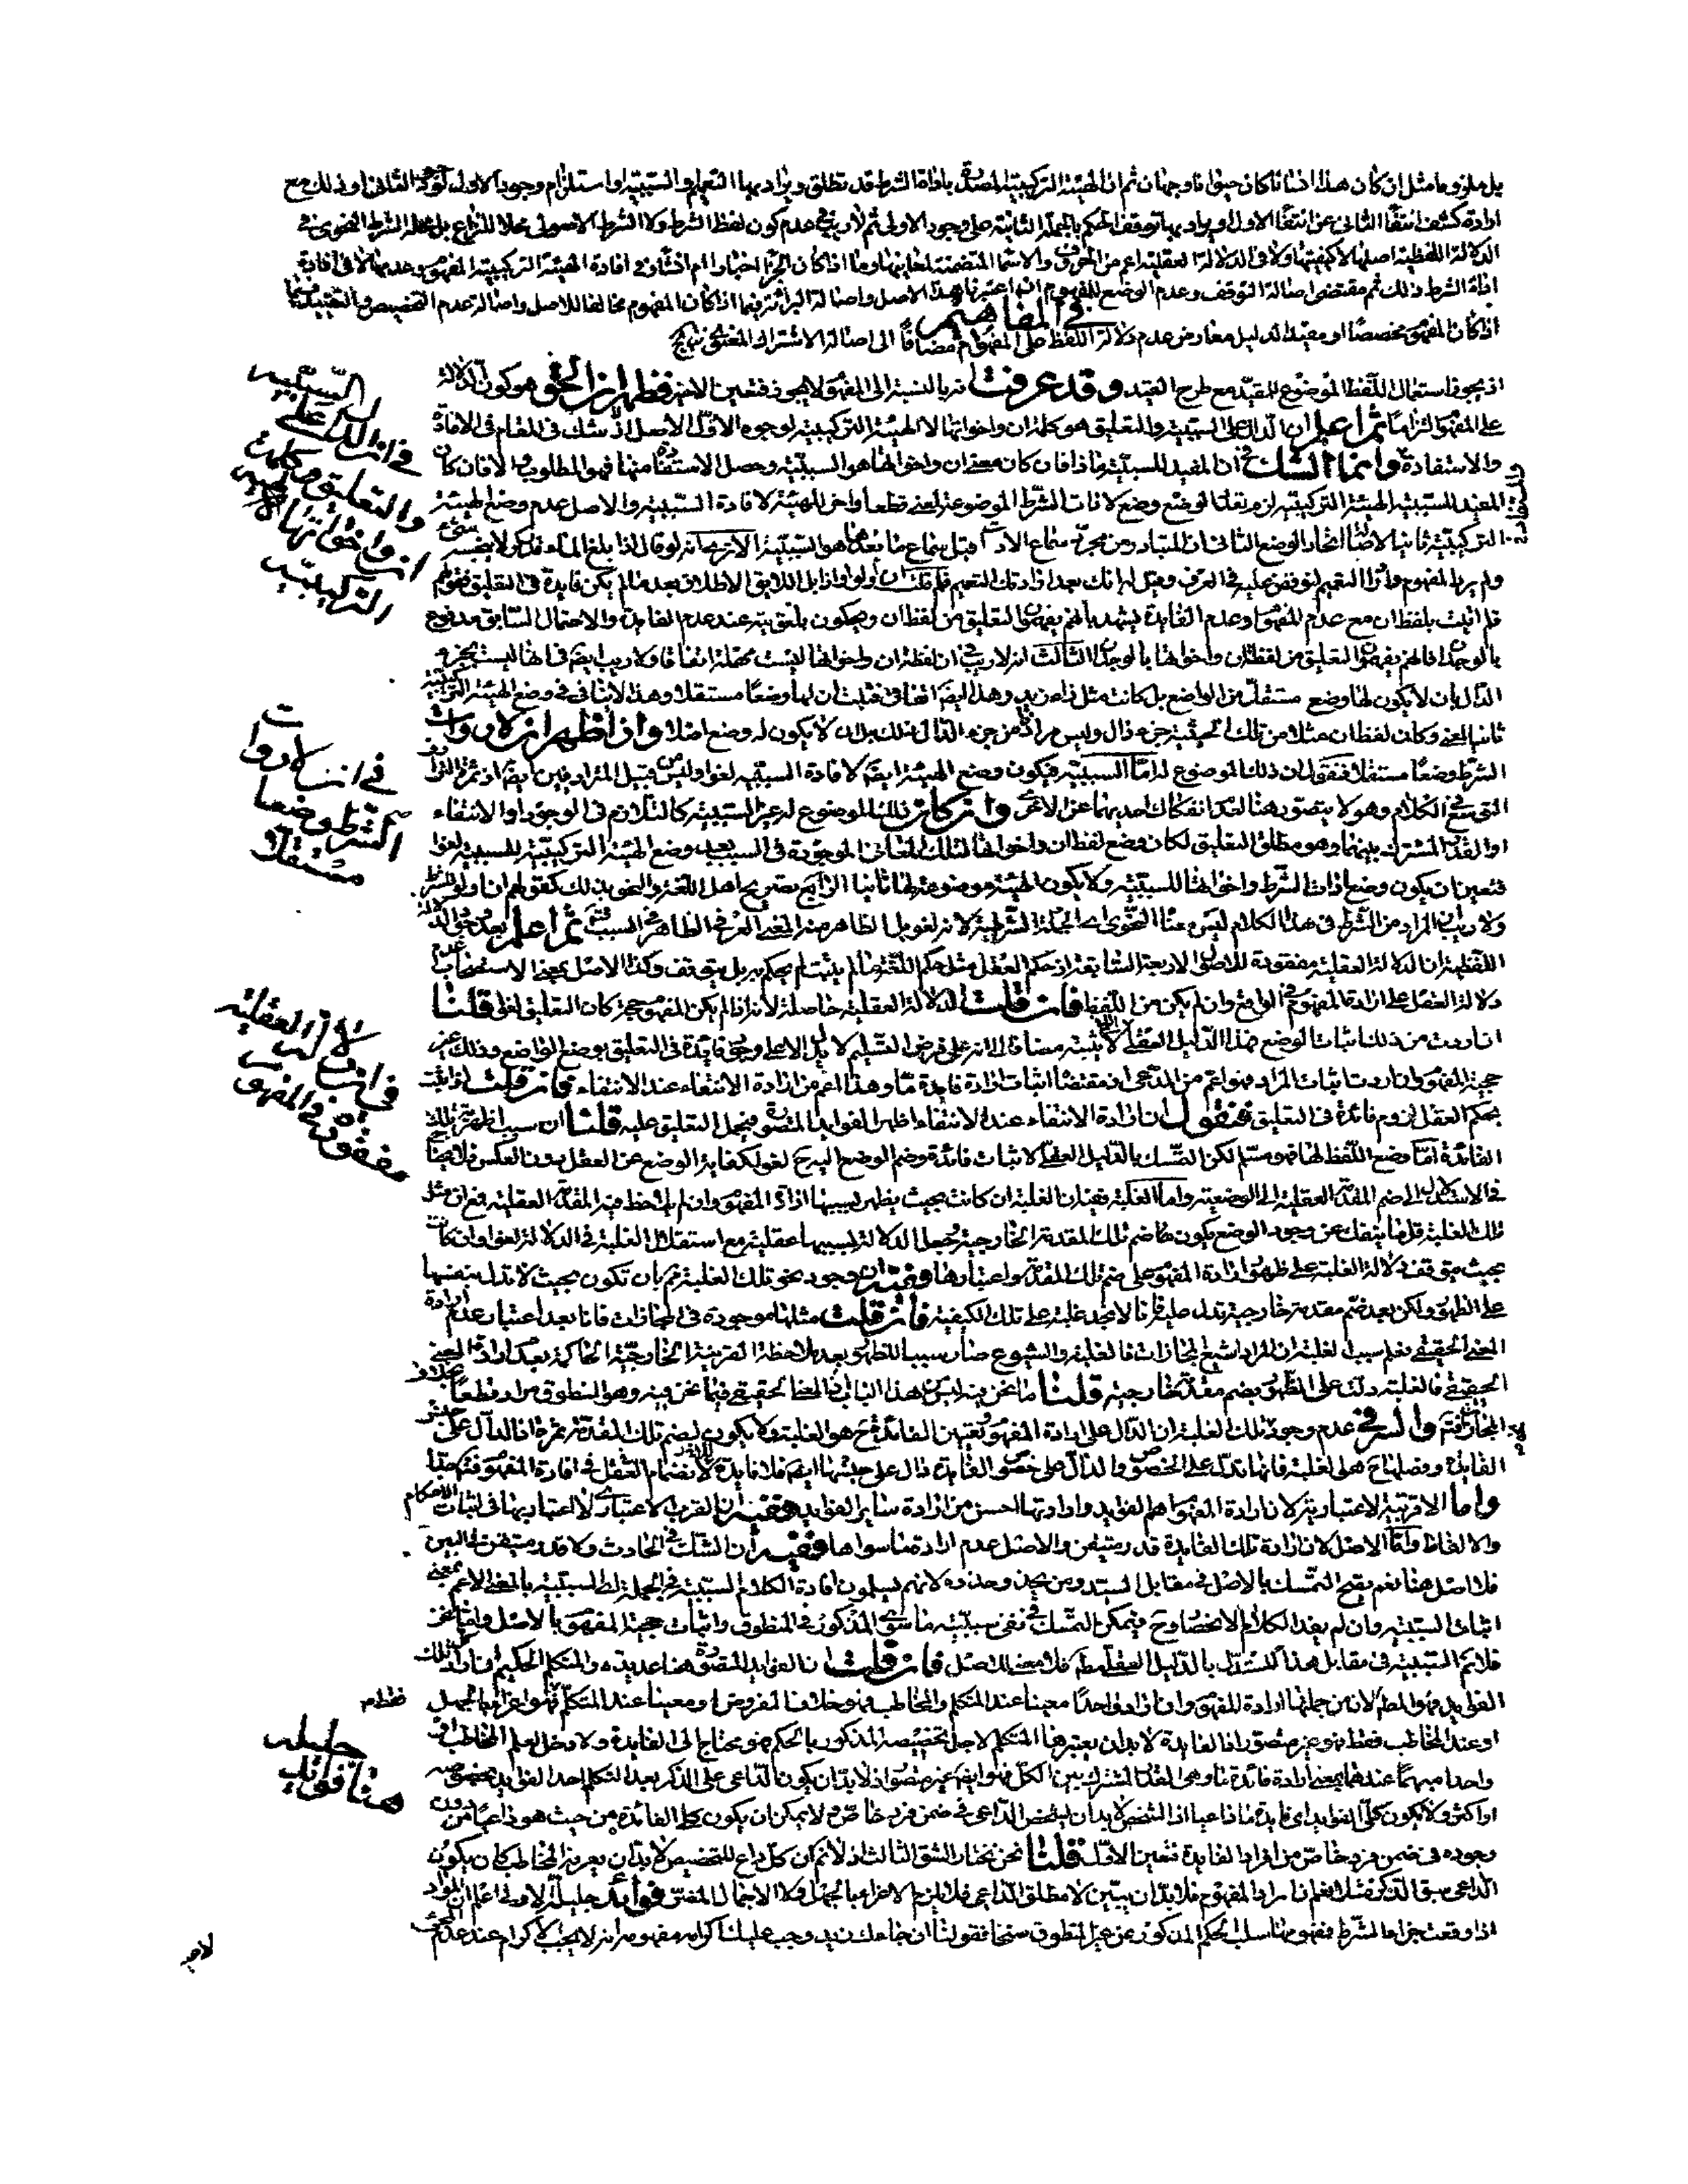 بل ملزوما مثل ان كان هذا انسانا كان حيوانا وجهان ثم ان الهيئة التركيبية المصدرة باداة الشرط قد تطلق ويراد بها التعليق والسببية واستلزام وجود الاول لوجود الثانى او ذلك مع
ارادة كشف انتفاء الثانى عن انتفاء الاول او يراد بها توقف الحكم بالجملة الثانية على وجود الاولى ثم لا ريب فى عدم كون لفظ الشرط ولا الشرط الاصولى محلا للنزاع بل محله الشرط النحوى فى
الدلالة اللفظية اصلها لا كيفيتها ولا فى الدلالة العقلية اعم من الحروف والاسماء المتضمنة لمعانيها وما اذا كان الجزاء اخبارا ام انشاء فى افادة الهيئة التركيبية المفهوم وعدمها لا فى افادة
اداة الشرط ذلك ثم مقتضى اصالة التوقف وعدم الوضع للمفهوم اذا اعتبرنا هذا الاصل واصالة البرائة فيما اذا كان المفهوم مخالفا للاصل واصالة عدم التخصيص والتقييد فيما
فى المفاهيم
اذا كان المفهوم مخصصا او مقيدا لدليل معارض عدم دلالة اللفظ على المفهوم مضافا الى اصالة الاشتراك المعنوى
اذ يجوز استعمال اللفظ الموضوع للمقيد مع طرح القيد وقد عرفت انه بالنسبة الى المفهوم لا يجوز فتعين الاخر فظهر ان الحق هو كون الدلالة
على المفهوم التزاما ثم اعلم ان الدال على السببية والتعليق هو كلمة ان واخواتها لا الهيئة التركيبية لوجوه الاول الاصل اذ لا شك فى المقام فى الافادة
والاستفادة وانما الشك فى ان المفيد للسببية ماذا فان كان معنى ان واخواتها هو السببية وحصل الاستفادة منها فهو المطلوب والا فان كان
المفيد للسببية الهيئة التركيبية لزم تعدد الوضع وضع لادات الشرط الموضوعة لمعنى قطعا واخر للهيئة لافادة السببية والاصل عدم وضع الهيئة
التركيبية ثانيا لاصالة اتحاد الوضع الثانى ان المتبادر من مجرد سماع الاداة قبل سماع ما بعدها هو السببية الا ترى انه لو قال اذا بلغ الماء قدر كر لا ينجسه شىء
ولم يرد المفهوم واراد التعميم لوقفن عليه فى العرف وقيل له انك بعد ارادتك التعميم فلم قلت ان ولو واذا بل اللايق الاطلاق بعد ما لم يكن فايدة فى التعليق فقولهم
فلم اتيت بلفظ ان مع عدم المفهوم وعدم الفايدة يشهد بانهم يفهمون التعليق من لفظ ان ويحكون بلغويته عند عدم الفايدة والاحتمال السابق مدفوع
بالوجدان فانهم يفهمون التعليق من لفظ ان واخواتها بالوجدان الثالث انه لا ريب فى ان لفظ ان واخواتها ليست مهملة اتفاقا ولا ريب ايضا فى انها ليست بجزء
الدال بان لا يكون لها وضع مستقل من الواضع بل كانت مثل زاء زيد وهذا ايضا اتفاقى فثبت ان لها وضعا مستقلا وهذا لا ينافى فى وضع الهيئة التركيبية
ثانيا لمعنى وكان لفظ ان مثلا من تلك الحيثية جزء دال وليس مرادنا من جزء الدال ذلك بل ان لا يكون له وضع اصلا واذا ظهر ان لادوات
الشرط وضعا مستقلا فنقول ان ذلك الموضوع له اما السببية فيكون وضع الهيئة ايضا لافادة السببية لغوا وليس من قبيل المترادفين ايضا اذ ثمرة الترادف
التوسع فى الكلام وهو لا يتصور هنا لعدم انفكاك احديهما عن الاخرى وان كان ذلك الموضوع له غير السببية كالتلازم فى الوجود او الانتفاء
او القدر المشترك بينهما وهو مطلق التعليق لكان وضع لفظ ان واخواتها لتلك المعانى الموجودة فى السبب بعد وضع الهيئة التركيبية للسببية لغوا
فتعين ان يكون وضع ادات الشرط واخواتها للسببية ولا يكون الهيئة موضوعة لها ثانيا الرابع تصريح اهل اللغة والنحو بذلك كقولهم ان ولو للشرط
ولا ريب ان المراد من الشرط فى هذا الكلام ليس معناه النحوى اى الجملة الشرطية لانه لغو بل الظاهر منه المعنى العرفى الظاهر فى السبب فتعين ثم اعلم بعد دعوى الدلالة
اللفظية ان الدلالة العقلية مفقودة للاصل الاربعة السابقة اذ حكم العقل مثل حكم اللغة ما لم يثبت لم يحكم به بل يتوقف وكذا الاصل بمعنى الاستصحاب عدم
دلالة العقل على ارادة المفهوم فى الواقع وان لم يكن من اللفظ فان قلت الدلالة العقلية حاصلة لانه اذا لم يكن المفهوم حجة كان التعليق لغوا قلنا
ان اردت من ذلك اثبات الوضع فهذا الدليل العقلى لا يثبته مضافا الى انه على فرض التسليم لا يدل الا على وجود فايدة فى التعليق بوضع الواضع وذلك غير
حجية المفهوم وان اردت اثبات المراد فهو اعم من المدعى اذ مقتضاه اثبات ارادة فايدة ما وهذا اعم من ارادة الانتفاء عند الانتفاء فان قلت اذا ثبت
بحكم العقل لزوم فائدة فى التعليق فنقول ان ارادة الانتفاء عند الانتفاء اظهر الفوايد المتصورة فيحمل التعليق عليه قلنا ان سبب اظهرية تلك
الفائدة اما وضع اللفظ لها فهو مسلم لكن التمسك بالدليل العقلى لاثبات فائدة وضم الوضع اليه ح لغو لكفاية الوضع عن العقل بدون العكس فلا يحتاج
فى الاستدلال الى ضم المقدمة العقلية الى الوضعية واما الغلبة ففيه ان الغلبة ان كانت بحيث يظهر بسببها ارادة المفهوم وان لم يلاحظ فيه المقدمة العقلية فمع ان مثل
تلك الغلبة قلما ينفك عن وجود الوضع يكون ما ضم تلك المقدمة الخارجية وجعل الدلالة بسببها عقلية مع استقلال الغلبة فى الدلالة لغوا وان كانت
بحيث يتوقف دلالة الغلبة على ظهور ارادة المفهوم على ضم تلك المقدمة واعتبارها ففيه ان وجود نحو تلك الغلبة ثم بان تكون بحيث لا تدل بنفسها
على الظهور ولكن بعد ضم مقدمة خارجية تدل عليه فانا لا نجد غلبة على تلك الكيفية فان قلت مثلها موجودة فى المجازات فانا بعد اعتبار عدم ارادة
المعنى الحقيقى نعلم بسبب الغلبة ان المراد اشيع المجازات فالغلبة والشيوع صار سببا للظهور بعد ملاحظة القرينة الخارجية الحاكمة بعدم ارادة المعنى
الحقيقى فالغلبة دلت على الظهور بضم مقدمة خارجية قلنا ما نحن فيه ليس من هذا الباب اذ المعنى الحقيقى فيما نحن فيه وهو المنطوق مراد قطعا بخلاف
المجاز فتم والسر فى عدم وجود تلك الغلبة ان الدال على ارادة المفهوم وتعيين الفائدة ح هو الغلبة ولا يكون لضم تلك المقدمة ثمرة اذ الدال على جنس
الفايدة وفصلها ح هى الغلبة فانها تدل على الخصوص والدال على خصوص الفايدة دال على جنسها ايضا فلا فايدة لانضمام العقل فى افادة المفهوم فتم جدا
واما الاقربية الاعتبارية لان ارادة المفهوم اهم الفوايد وارادتها احسن من ارادة ساير الفوايد ففيه ان القرب الاعتبارى لا اعتبار بها فى اثبات الاحكام
والالفاظ واما الاصل لان ارادة تلك الفايدة قدر متيقن والاصل عدم ارادة ما سواها ففيه ان الشك فى الحادث ولا قدر متيقن فى البين
فلا اصل هنا نعم يصح التمسك بالاصل فى مقابل السيد ومن يحذو حذوه لانهم يسلمون افادة الكلام السببية فى الجملة اى السببية بالمعنى الاعم بمعنى
اثبات السببية وان لم يفد الكلام الانحصار وح فيمكن التمسك فى نفى سببية ما سوى المذكور فى المنطوق واثبات حجية المفهوم بالاصل واما نحن
فلا نتم السببية فى مقابل هذا المستدل بالدليل العقلى مط فلا معنى للاصل فان قلت ان الفوايد المتصورة هنا عديدة والمتكلم الحكيم ان اراد تلك
الفوايد فهو المط لان من جملتها ارادة المفهوم وان اراد واحدا معينا عند المتكلم والمخاطب فهو خلاف المفروض او معينا عند المتكلم فهو اغراء بالجهل
او عند المخاطب فقط فهو غير متصور اذ الفايدة لا بد ان يعتبرها المتكلم لاجل تخصيصه المذكور بالحكم فهو محتاج الى الفايدة ولا دخل لعلم المخاطب او
واحدا مبهما عندهما بمعنى ارادة فائدة ما وهى القدر المشترك بين الكل فهو ايضا غير متصور اذ لا بد ان يكون الداعى على الذكر بعد التكلم احد الفوايد بخصوصه
او اكثر ولا يكون كلى الفوايد اى فايدة ما داعيا اذ الشخص لا بد ان يشخص الداعى فى ضمن فرد خاص ولا يمكن ان يكون كلى الفائدة من حيث هو داعيا من دون
وجوده فى ضمن فرد خاص من افراد الفايدة فتعين الاول قلنا نحن نختار الشق الثالث اذ لا نم ان كل داع للتخصيص لا بد ان يعرفه المخاطب كان يكون
الداعى سبق الذكر مثلا نعم اذا اراد المفهوم فلا بد ان يبين لا مطلق الداعى فلا يلزم الاغراء بالجهل ولا الاجمال المفوت فوائد جليلة الاولى اعلم ان المراد
اذا وقعت جزاء للشرط فمفهومها سلب الحكم المذكور عن غير المنطوق سنخا فقولنا ان جاءك زيد وجب عليك اكرامه مفهومه انه لا يجب الاكرام عند عدم المجىء
فى ان الدال على السببية
والتعليق هو كلمة
ان واخواتها لا الهيئة
التركيبية
فى ان لادوات
الشرط وضعا
مستقلا
فى ان الدلالة العقلية
مفقودة فى المفهوم
هنا فوائد
جليلة